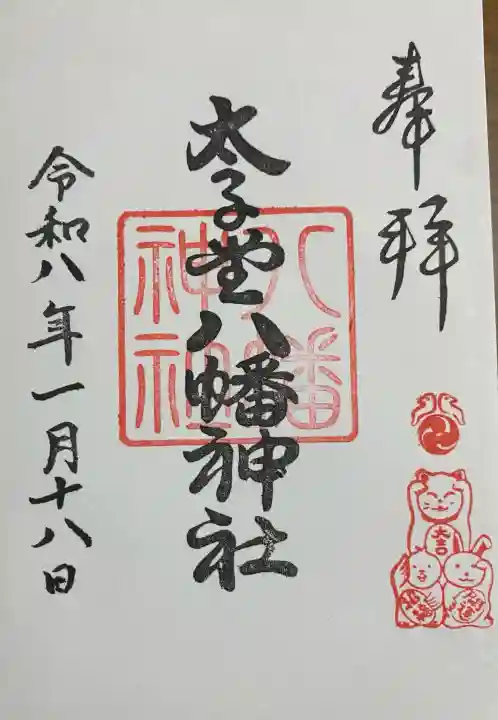 奉拝
太子堂八幡神社
八幡
神社
令和八年一月十八日
大吉